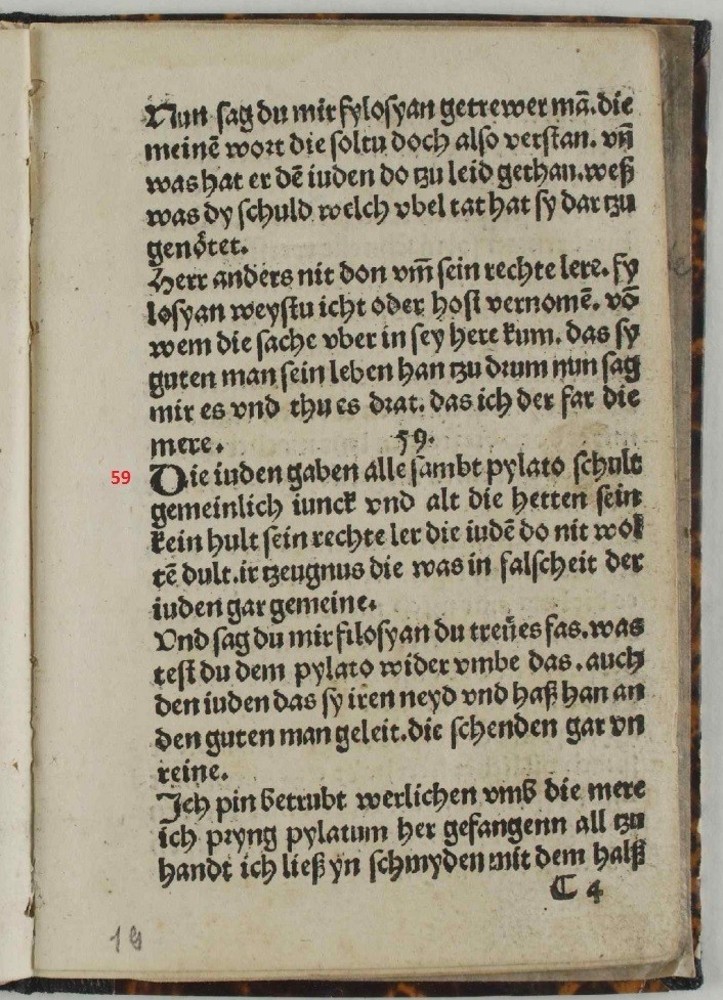 Nun sag du mir fylosyan getrewer mā.die
meinē wort die soltu doch also verstan. vn̄
was hat er dē iuden do tzu leid gethan.weß
was dy schuld welch vbel tat hat sy dar tzu
genötet.
Herr anders nit don vm̄ sein rechte lere. fy
losyan weystu icht oder host vernomē. vō
wem die sache vber in sey here kum. das sy
guten man sein leben han tzu drum nun sag
mir es vnd thu es drat. das ich der far die
mere. 59.
59 Die iuden gaben alle sambt pylato schult
gemeinlich iunck vnd alt die hetten sein
kein hult sein rechte ler die iudē do nit wol
tē dult.ir tzeugnus die was in falscheit der
iuden gar gemeine.
Vnd sag du mir filosyan du treües fas.was
test du dem pylato wider vmbe das.auch
den iuden das sy iren neyd vnd haß han an
den guten man geleit.die schenden gar vn
reine.
Ich pin betrubt werlichen vmb die mere
ich pryng pylatum her gefangenn all tzu
handt ich ließ yn schmyden mit dem halß
C 4
19